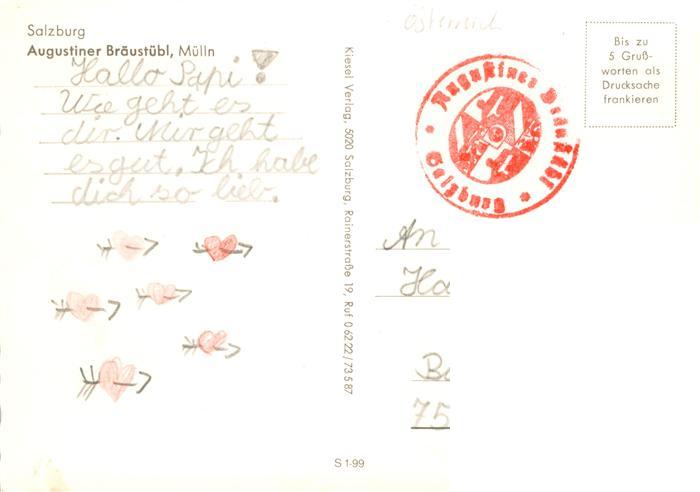 Salzburg
Augustiner Bräustübl, Mülln
Hallo Papi!
Wie geht es
dir. Mir geht
es gut. Ich habe
dich so lieb.
Kiesel Verlag, 5020 Salzburg, Rainerstraße 19, Ruf 0 62 22 / 73 5 87
S 1-99
Österreich
Augustiner Bräustübl
Salzburg
Bis zu
5 Gruß-
worten als
Drucksache
frankieren
An
Ha
B
75